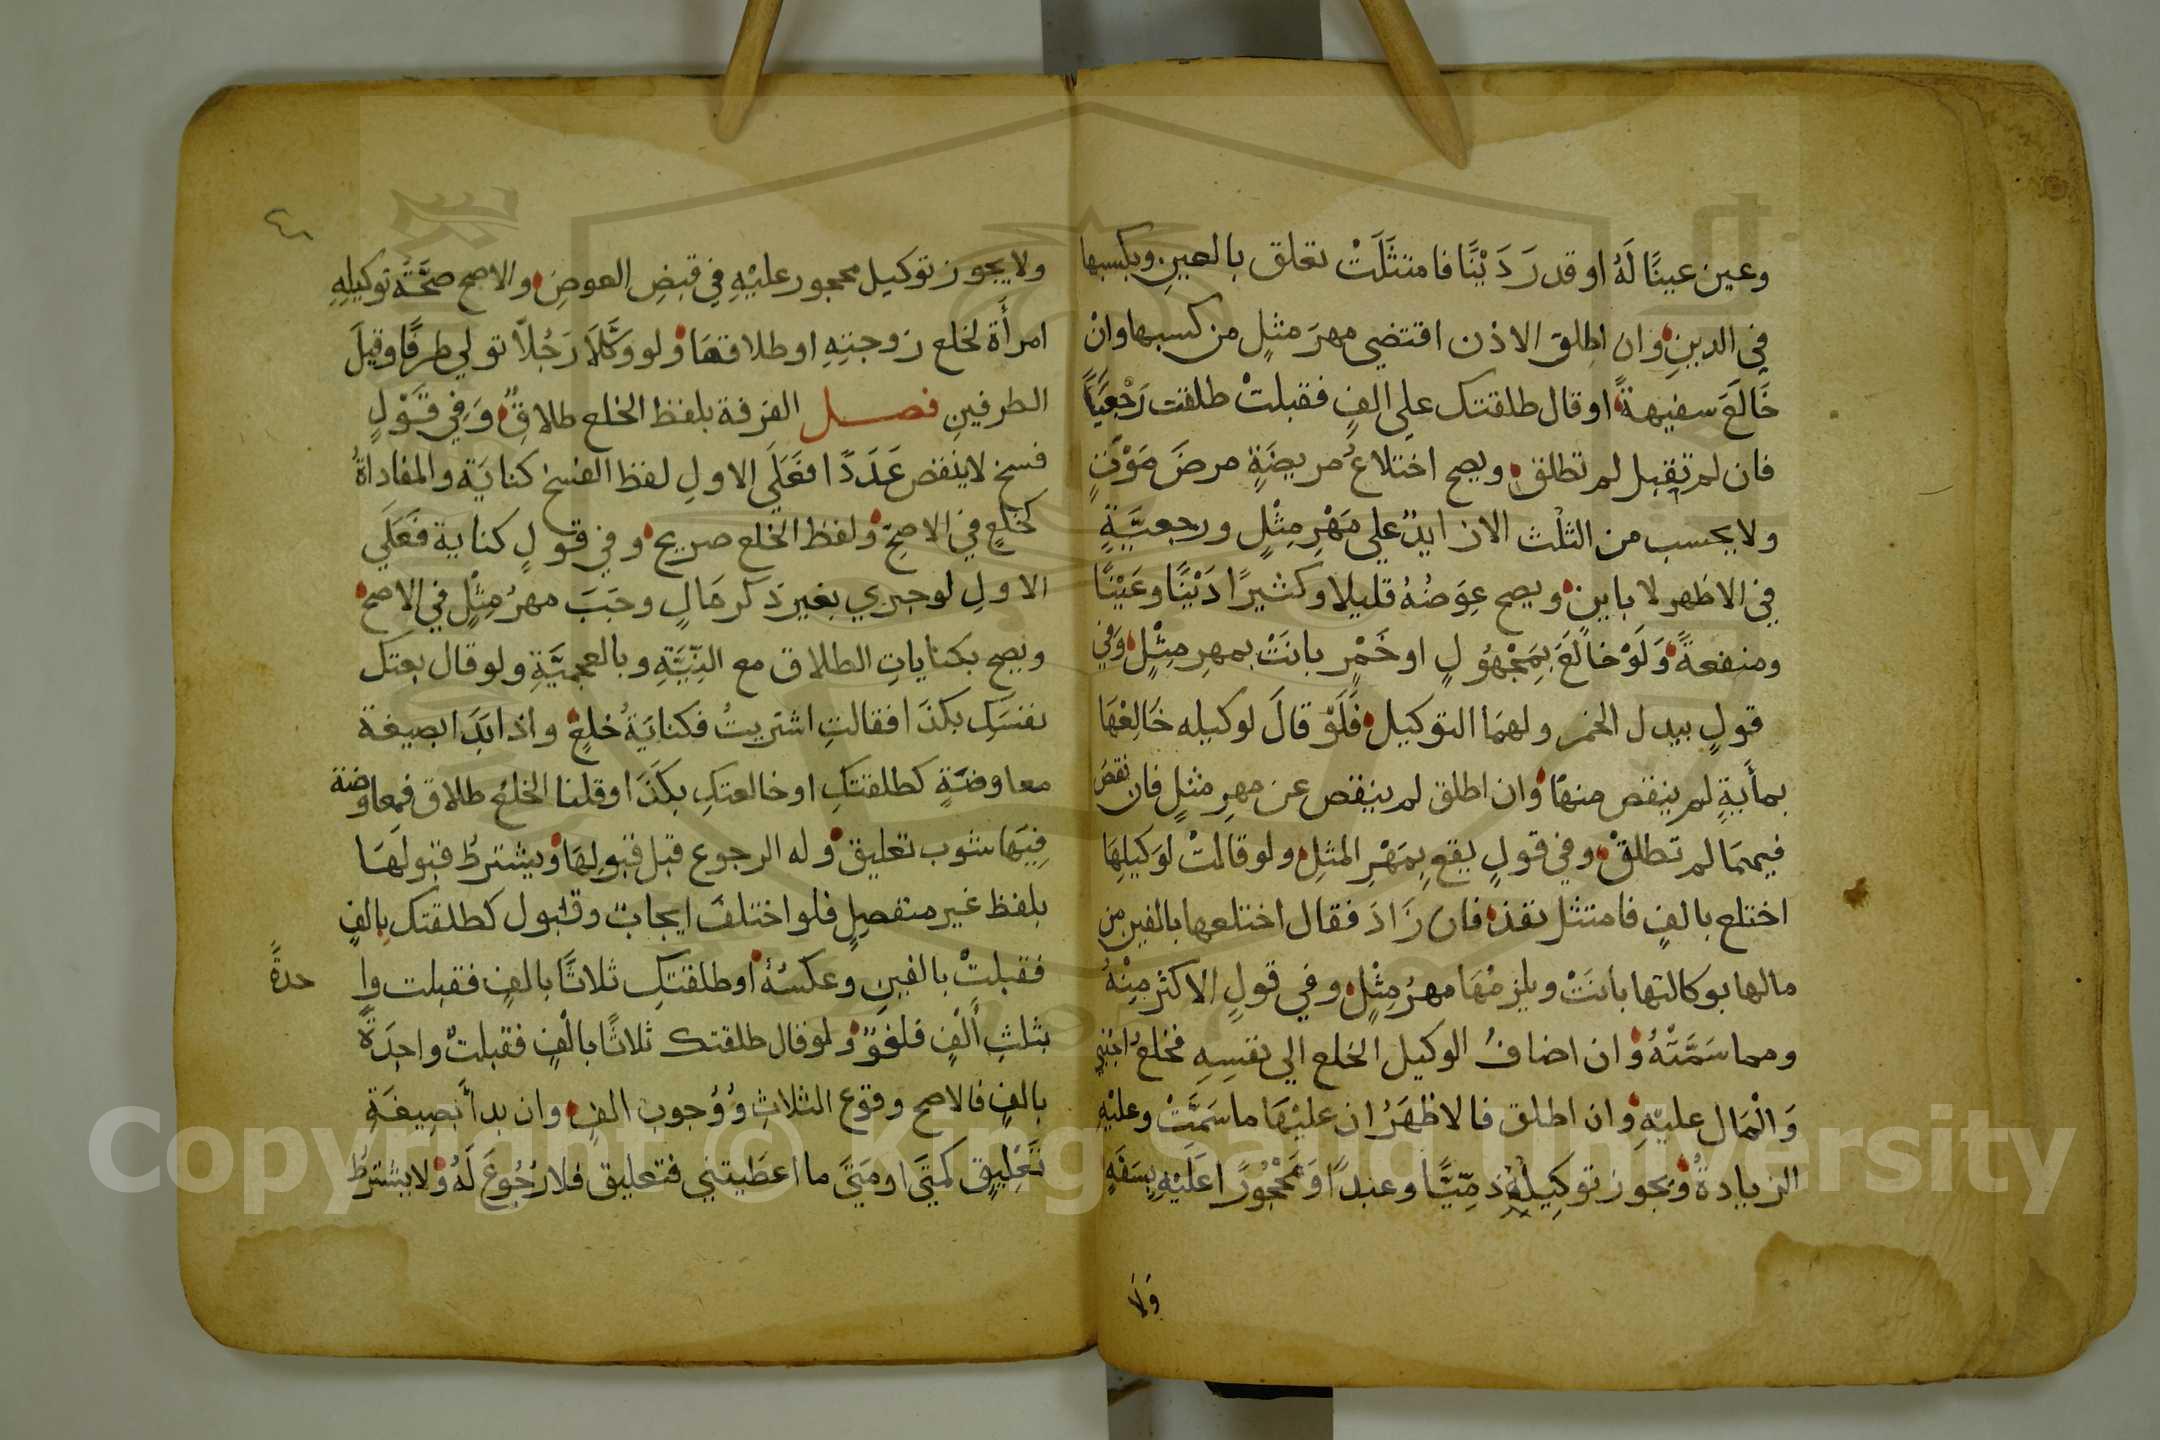 وعين عينًا لَهُ او قدر دَيْنًا فامتثَلَتْ تعلق بالعينِ وبكسبها
في الدينِ وان اطلق الاذن اقتضي مهرَ مثلٍ من كسبها وانْ
خَالَعَ سفيهةً او قال طلقتك علي الفٍ فقبلتْ طلقت رَجْعِيًّا
فان لم تقبل لم تطلق ويصح اختلاعُ مريضَةٍ مرضَ مَوْتٍ
ولا يحسب من الثلْث الا زايدٌ علي مَهْرِ مِثْلٍ ورجعيَّةٍ
في الاظهر لا باينٍ ويصح عِوَضُهُ قليلا وكثيرًا دَيْنًا وعَيْنًا
ومنفعةً وَلَوْ خالَعَ بِمَجْهُولٍ او خَمْرٍ بانَتْ بمهرِ مِثْلٍ وَفي
قولٍ ببدل الخمر ولهمَا التوكيل فَلَوْ قالَ لوكيله خَالِعْهَا
بمأيةٍ لم ينقص منهَا وان اطلق لم ينقص عن مهرِ مثلٍ فان نقصَ
فيهمَا لم تطلقْ وفي قولٍ يقع بِمَهْرِ المثلِ ولو قالتْ لوَكيلِهَا
اختلع بالفٍ فامتثل نفذ فان زَادَ فقال اختلعها بالفين من
مالها بوكالتها بانَتْ ويلزمْهَا مهرُ مِثْلٍ وفي قولٍ الاكثر مِنْهُ
ومما سَمَّتْهُ وان اضافُ الوكيل الخلع الي نفسِهِ فخلعُ اجنبي
وَالْمَال عليْهِ وان اطلق فالاظهَرُ ان عليْهَا ما سَمَّتْ وعليْهِ
الزيادةُ ويجوز توكيلِهِ ذمِّيًّا وعبدًا وَمَحْجُورًا عَلَيْهِ بِسَفَهٍ
ولا
٤٨
ولا يجوز توكيل محجور عليْهِ في قبضِ العوضِ والاصح صحَّةُ توكيلِهِ
امرأة لخلع زوجتِهِ او طلاقهَا ولو وَكَّلَا رَجُلًا تولي طرفًا وقيلَ
الطرفينِ فصل الفرقة بلفظ الخلع طلاقٌ وَفِي قَوْلٍ
فسخ لا ينقص عَدَدًا فَعَلَي الاولِ لفظ الفسخ كنايَة والمفاداةُ
كخلعٍ في الاصحِّ ولفظ الخلع صريح وفي قولٍ كناية فَعَلَي
الاولِ لو جري بغير ذكر مَالٍ وجَبَ مهرُ مِثْلٍ في الاصح
ويصح بكناياتِ الطلاق مع النِّيَّةِ وبالعجميَّةِ ولو قال بعتك
نفسَكِ بكذَا فقالتِ اشتريتُ فكنايَةُ خلعٍ واذا بَدَا بصيغة
معاوضَةٍ كطلقتكِ او خالعتكِ بكَذَا وقلنا الخلع طلاق فمعاوضة
فِيهَا شوب تعليق وله الرجوع قبل قبولِهَا ويشترط قبولهَا
بلفظ غير منفصلٍ فلو اختلفَ ايجاب وقبول كطلقتك بالفٍ
فقبلتْ بالفينِ وعكسُهُ او طلقتكِ ثلاثًا بالفٍ فقبلت وا حدةً
بثلثِ أَلْفٍ فلغوٌ ولو قال طلقتك ثلاثًا بالْفٍ فقبلتْ واحِدَةً
بالفٍ فالاصح وقوع الثلاثِ وَوُجوب الفٍ وان بدأ بصِيغَةِ
تَعْلِيقٍ كمتَي او مَتَي ما اعطَيتِني فتعليق فلا رُجُوعَ لَهُ ولا يشترط
Copyright © King Saud University